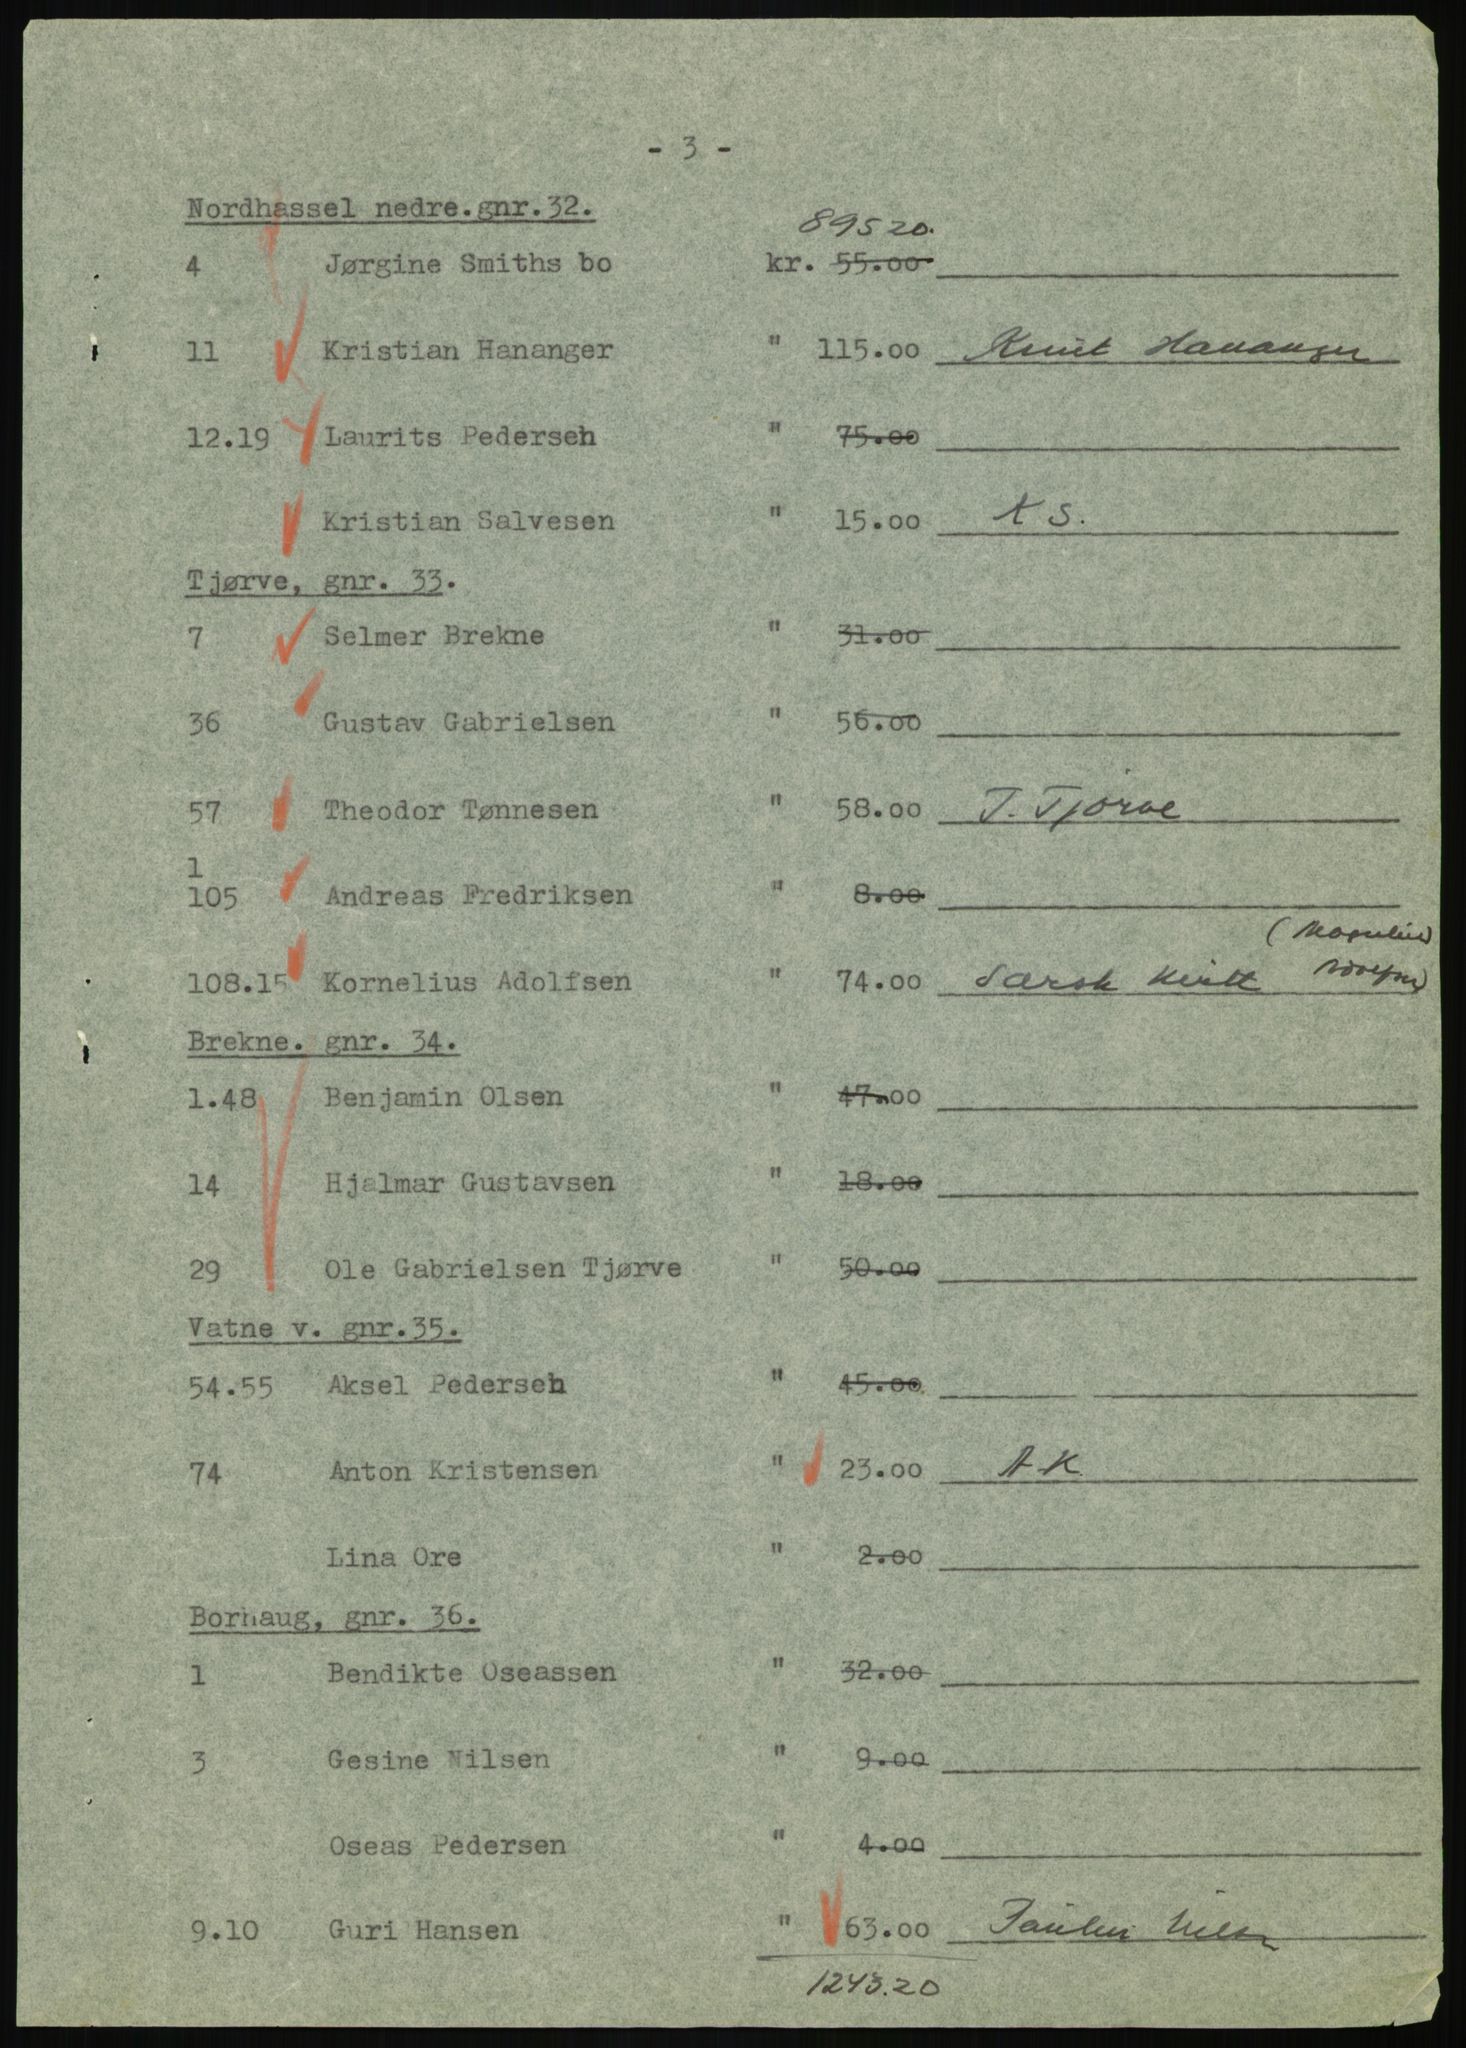 - 3 -
Nordhassel nedre.gnr.32.
895 20.
4 Jørgine Smiths bo kr. 55.00
11 Kristian Hananger " 115.00 Knut Hananger
12.19 Laurits Pedersen " 75.00
Kristian Salvesen " 15.00 K S.
Tjørve, gnr. 33.
7 Selmer Brekne " 31.00
36 Gustav Gabrielsen " 56.00
57 Theodor Tønnesen " 58.00 T. Tjørve
1
105 Andreas Fredriksen " 8.00
108.15 Kornelius Adolfsen " 74.00 Særsk kvitt
Brekne. gnr. 34.
1.48 Benjamin Olsen " 47.00
14 Hjalmar Gustavsen " 18.00
29 Ole Gabrielsen Tjørve " 50.00
Vatne v. gnr.35.
54.55 Aksel Pedersen " 45.00
74 Anton Kristensen " 23.00 A.K.
Lina Ore " 2.00
Borhaug, gnr. 36.
1 Bendikte Oseassen " 32.00
3 Gesine Nilsen " 9.00
Oseas Pedersen " 4.00
9.10 Guri Hansen " 63.00
1243.20